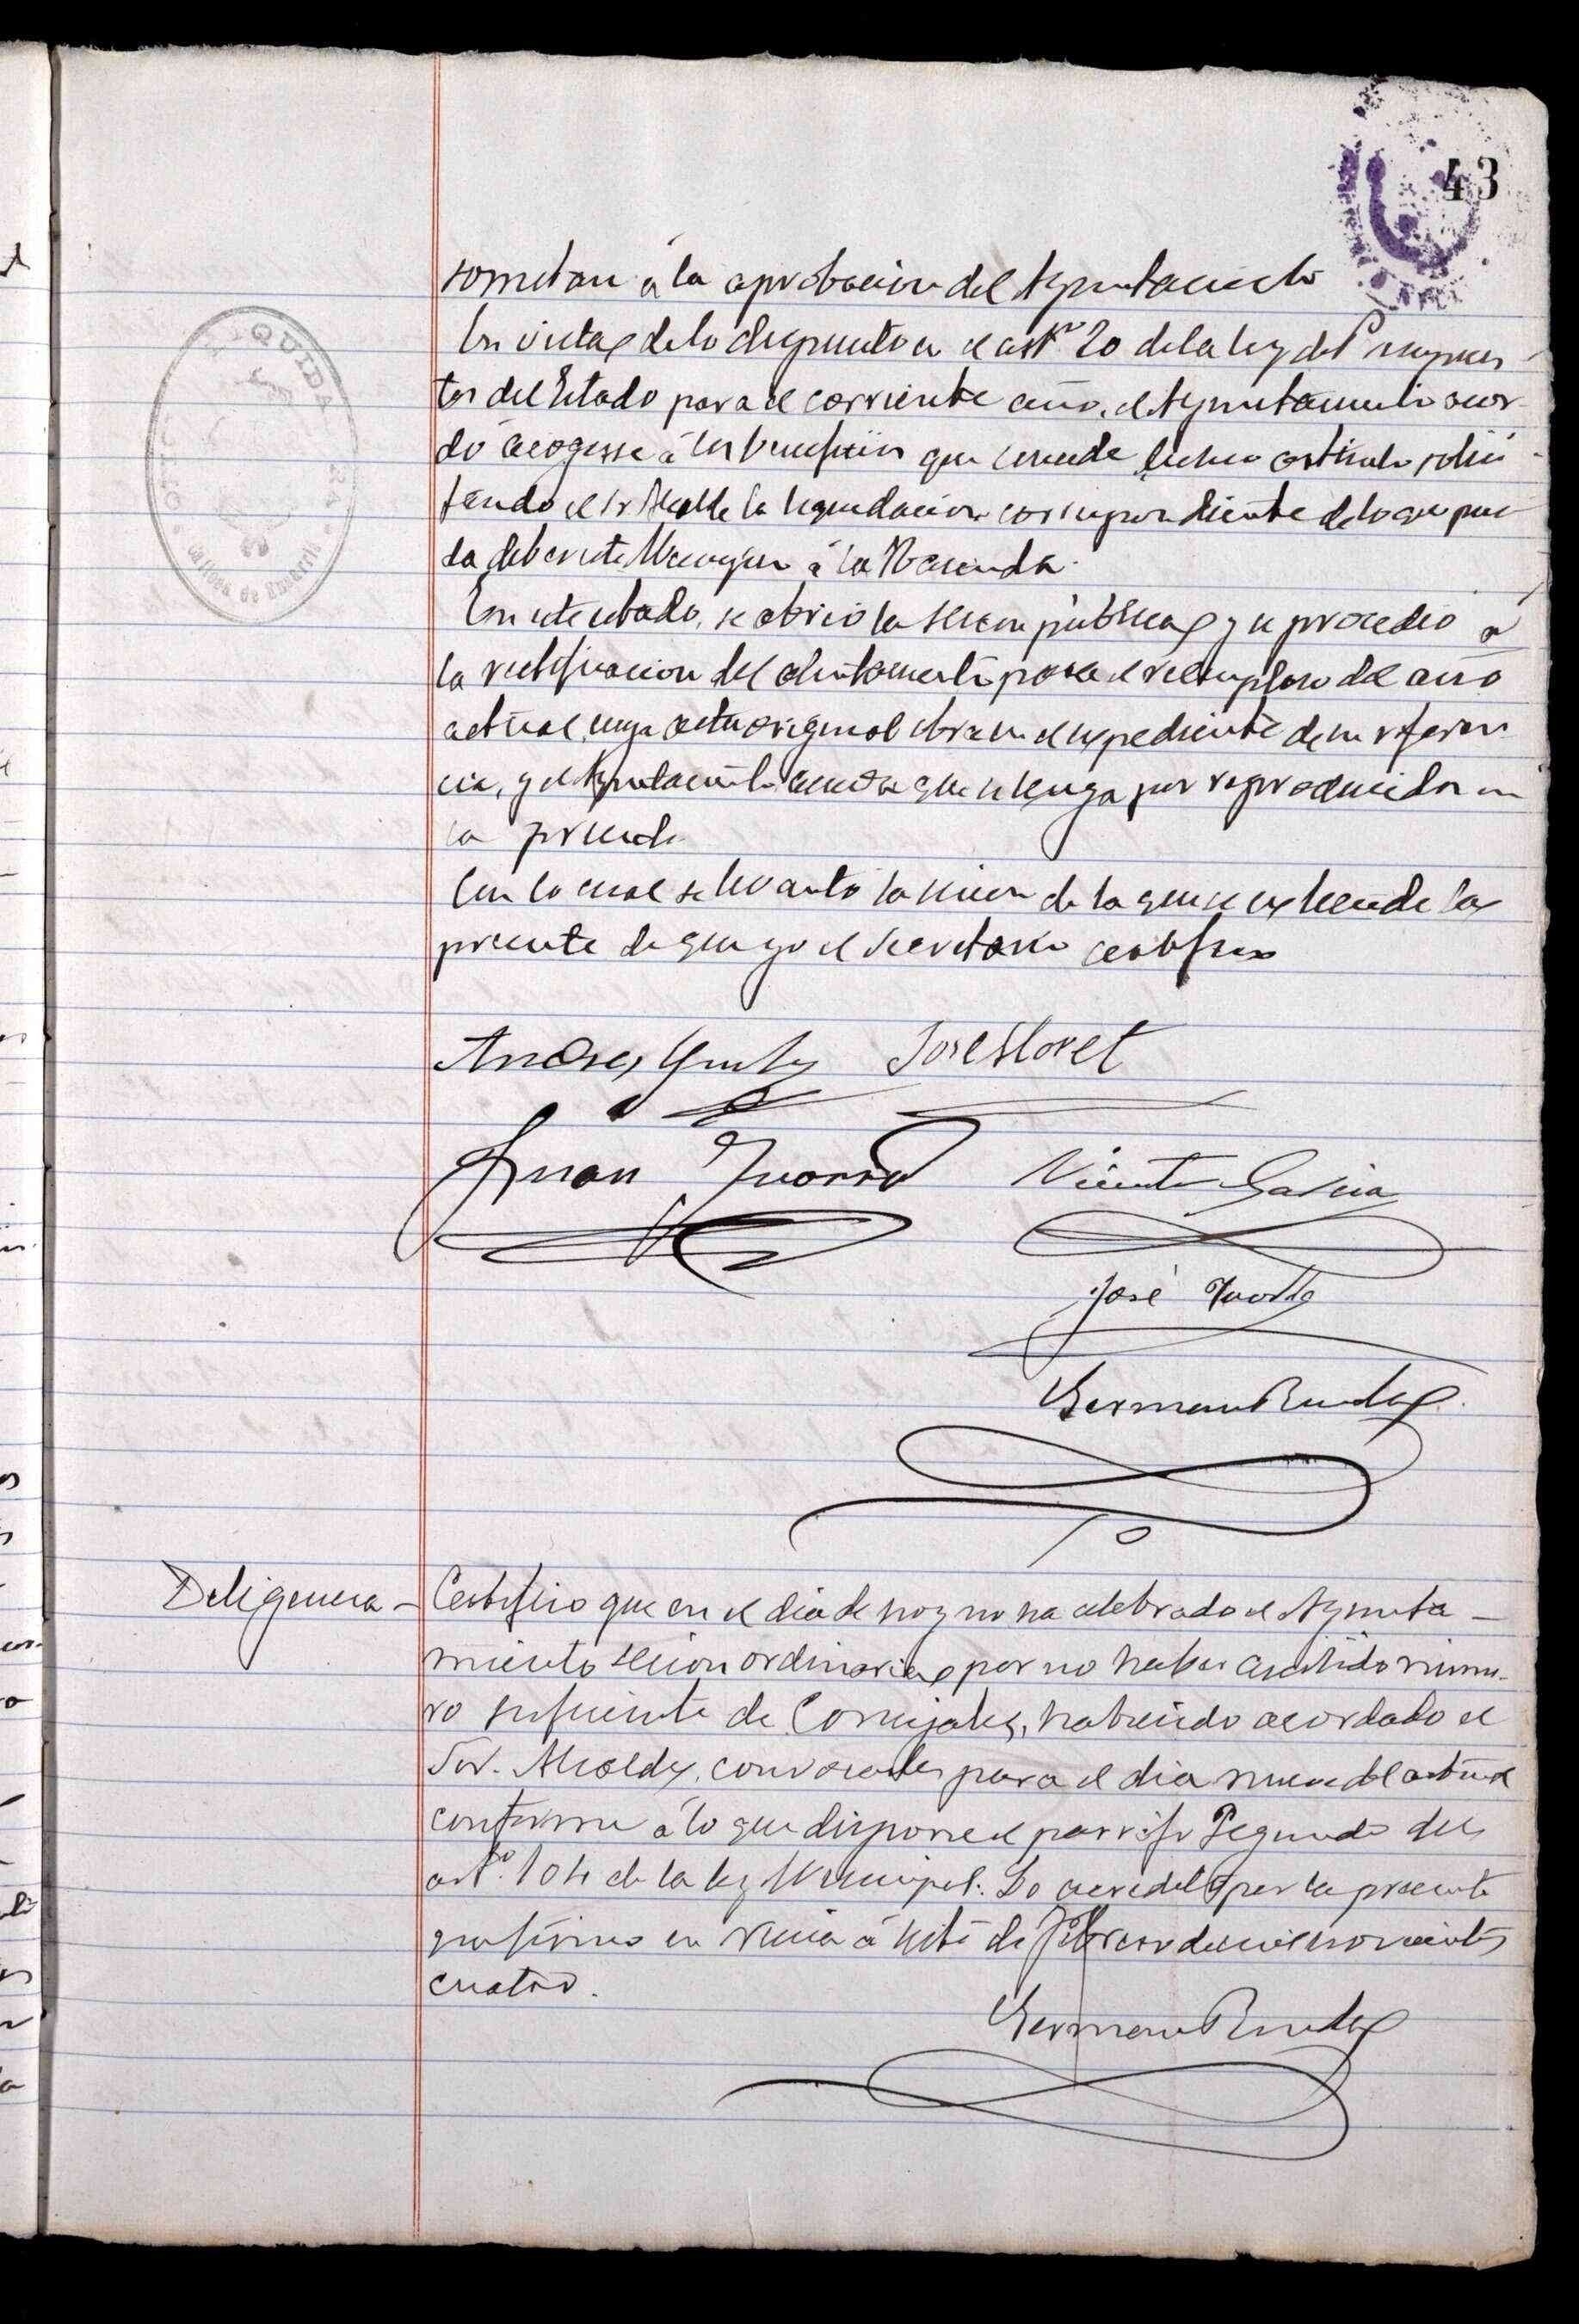 43
sometan á la aprobacion del Ayuntamiento
En vista de lo dispuesto en el artº 20 de la ley de Presupues-
tos del Estado para el corriente año, el Ayuntamiento acor-
dó acogerse á los beneficios que concede dicho artículo, solici-
tando el Sr Alcalde la liquidacion correspondiente de lo que pue-
da deber este Municipio á la Hacienda.
En este estado, se abrió la sesion pública y se procedió á
la rectificacion del alistamiento para el reemplazo del año
actual, cuya acta original obra en el expediente de su referen-
cia, y el Ayuntamiento acuerda que se tenga por reproducida en
la presente.
Con lo cual se levantó la sesion de la que se extiende la
presente de que yo el Secretario certifico
José Lloret
Juan
Vicente Garcia
José
German
Diligencia - Certifico que en el dia de hoy no ha celebrado el Ayunta-
miento sesion ordinaria por no haber asistido núme-
ro suficiente de Concejales, habiendo acordado el
Sor. Alcalde, convocarles para el dia nueve del actual
conforme á lo que dispone el parrafo segundo del
artº. 104 de la ley Municipal. Lo acredito por la presente
que firmo en á siete de Febrero de mil novecientos
cuatro.
German